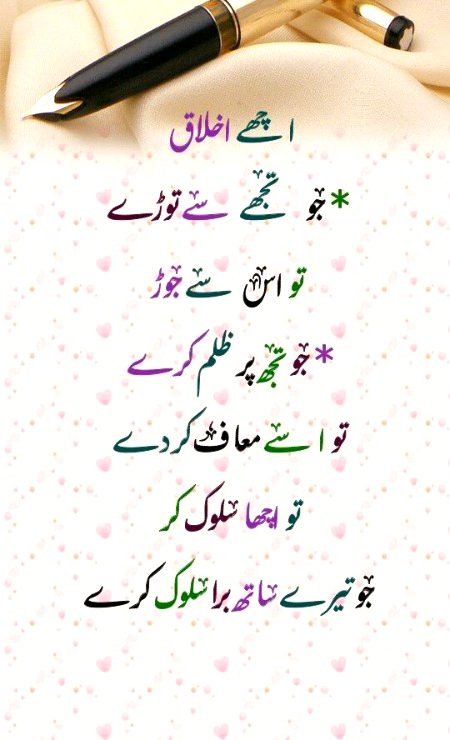 اچھے اخلاق
* جو تجھے سے توڑے
تو اس سے جوڑ
* جو تجھ پر ظلم کرے
تو اسے معاف کردے
تو اچھا سلوک کر
جو تیرے ساتھ برا سلوک کرے